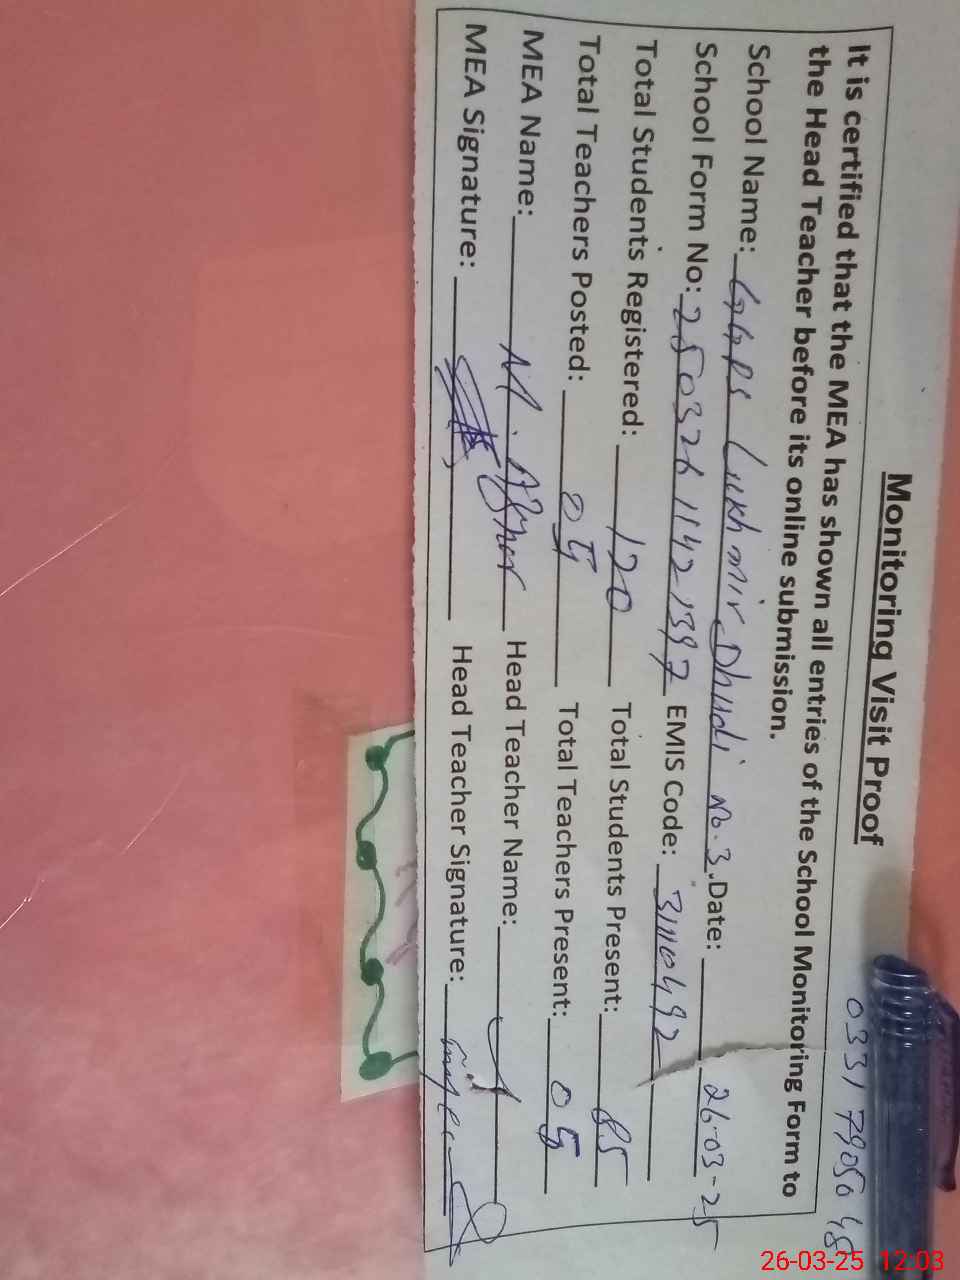 0331 7905048
Monitoring Visit Proof
It is certified that the MEA has shown all entries of the School Monitoring Form to
the Head Teacher before its online submission.
School Name: GGPS Lukhmir Dhudi No.3. Date: 26-03-25
School Form No: 25032611421397 EMIS Code: 31110492
Total Students Registered: 120 Total Students Present: 85
Total Teachers Posted: 05 Total Teachers Present: 05
MEA Name: M. Head Teacher Name:
MEA Signature: Head Teacher Signature:
26-03-25 12:03